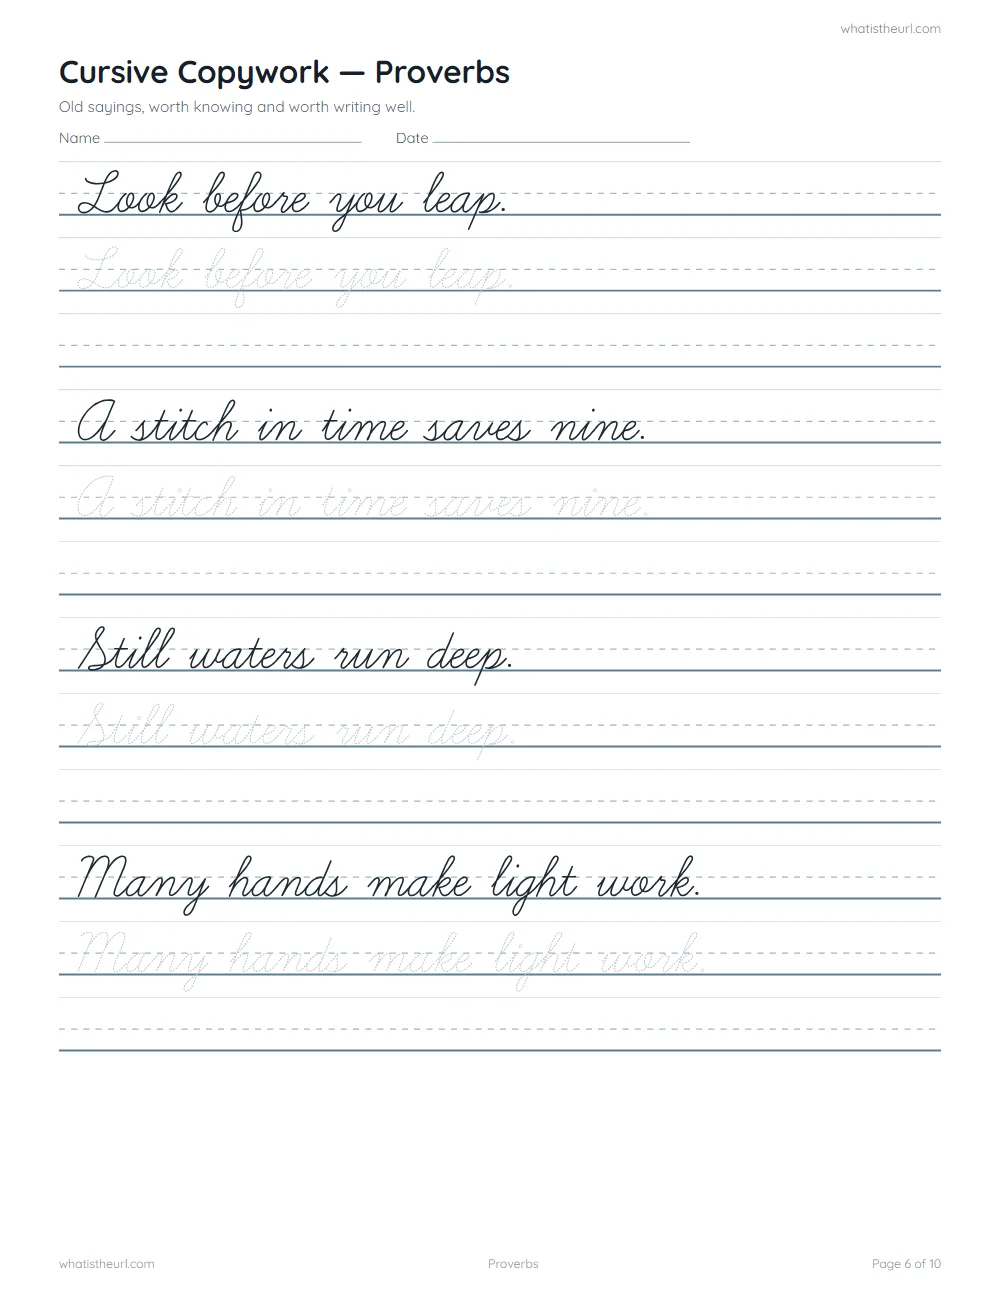 whatistheurl.com
Cursive Copywork — Proverbs
Old sayings, worth knowing and worth writing well.
Name Date
Look before you leap.
Look before you leap.
A stitch in time saves nine.
A stitch in time saves nine.
Still waters run deep.
Still waters run deep.
Many hands make light work.
Many hands make light work.
whatistheurl.com Proverbs Page 6 of 10